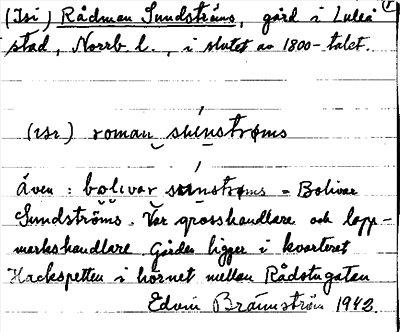 (Isi) Rådman Sundströms, gård i Luleå
stad, Norrb. l., i slutet av 1800-talet.
(ısı) roman sunstrøms
Även: bolivar sunstrøms = Bolivar
Sundströms. Var grosshandlare och lapp-
markshandlare. Gården ligger i kvarteret
Hackspetten i hörnet mellan Rådstugatan
Edvin Brännström 1942.